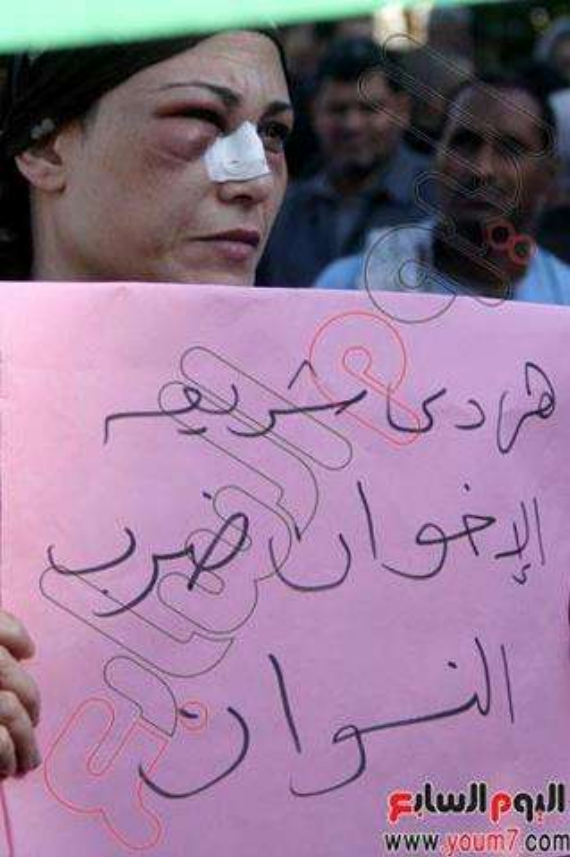 هى دى شريعه
الإخوان ضرب
النسوان
اليوم السابع
www.youm7.com